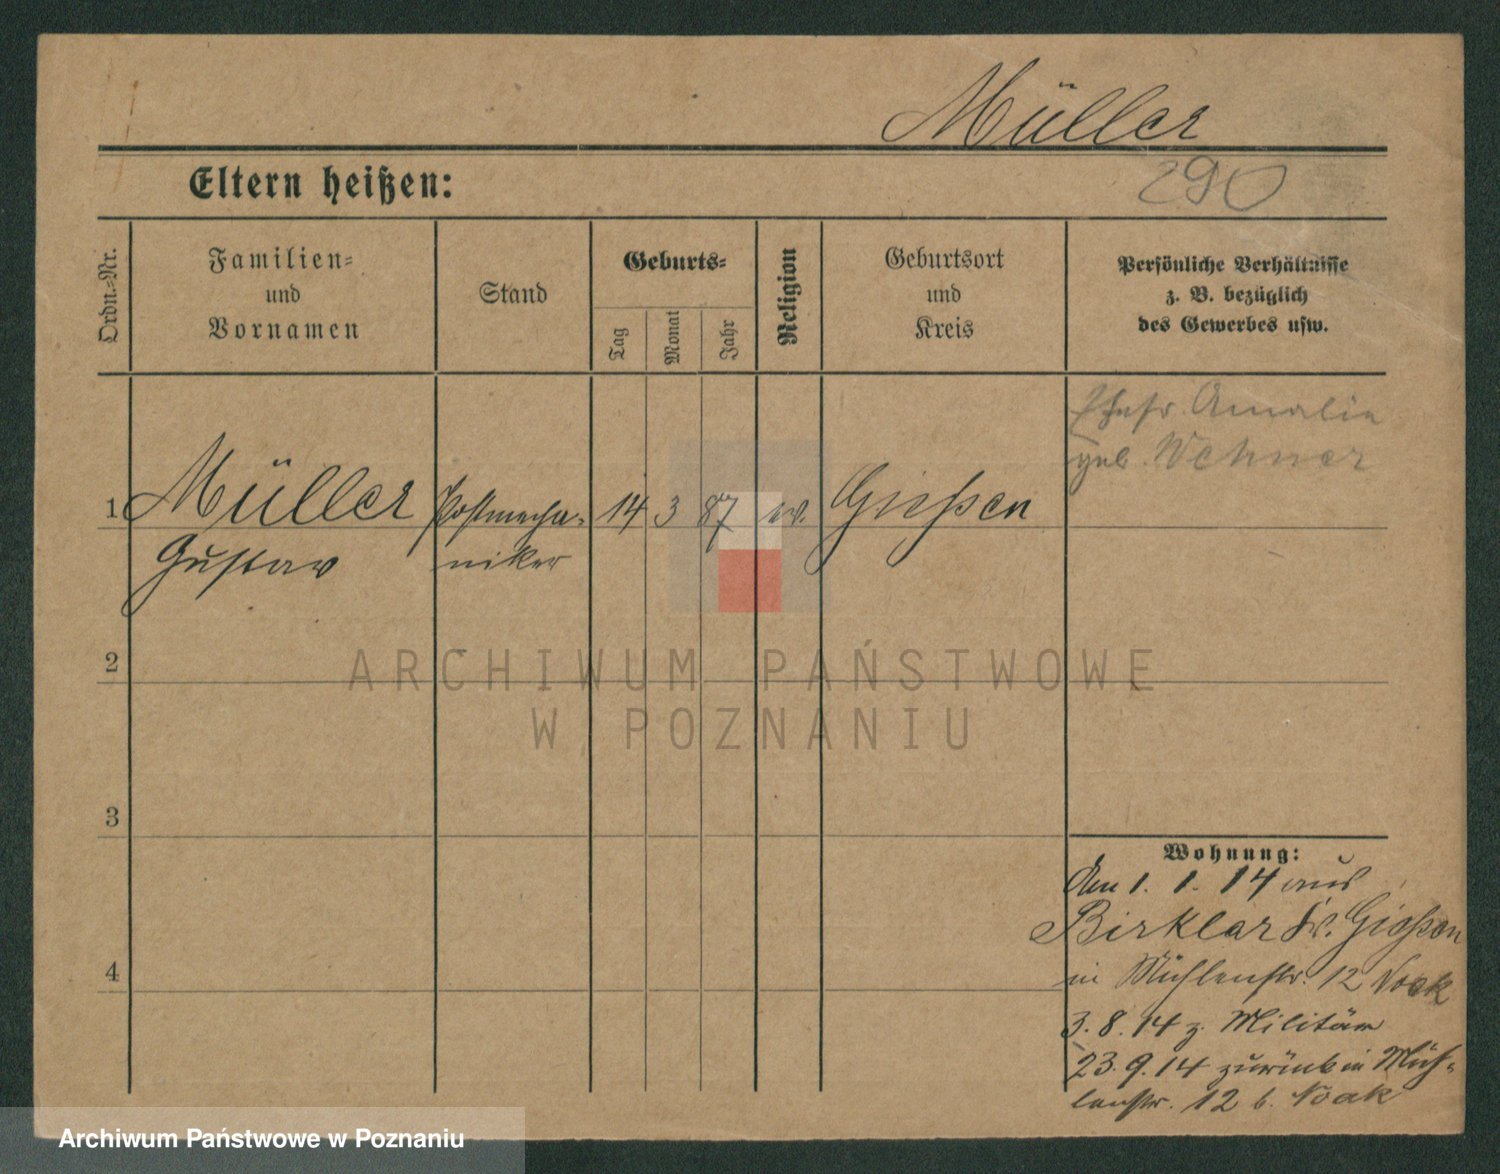 Müller
290
Eltern heißen:
Ordn.-Nr.
Familien-
und
Vornamen
Stand
Geburts-
Tag
Monat
Jahr
Religion
Geburtsort
und
Kreis
Persönliche Verhältnisse
z. B. bezüglich
des Gewerbes usw.
Ehefr. Amalie
geb. Wehner
1 Müller Postmecha- 14 3 87 ev. Gießen
Gustav niker
2
3
4
Wohnung:
Am 1. 1. 14 aus
Birklar Kr. Gießen
in Mühlenstr. 12 Noak
3. 8. 14 z. Militär
23. 9. 14 zurück in Müh-
lenstr. 12 b. Noak
ARCHIWUM PAŃSTWOWE
W POZNANIU
Archiwum Państwowe w Poznaniu